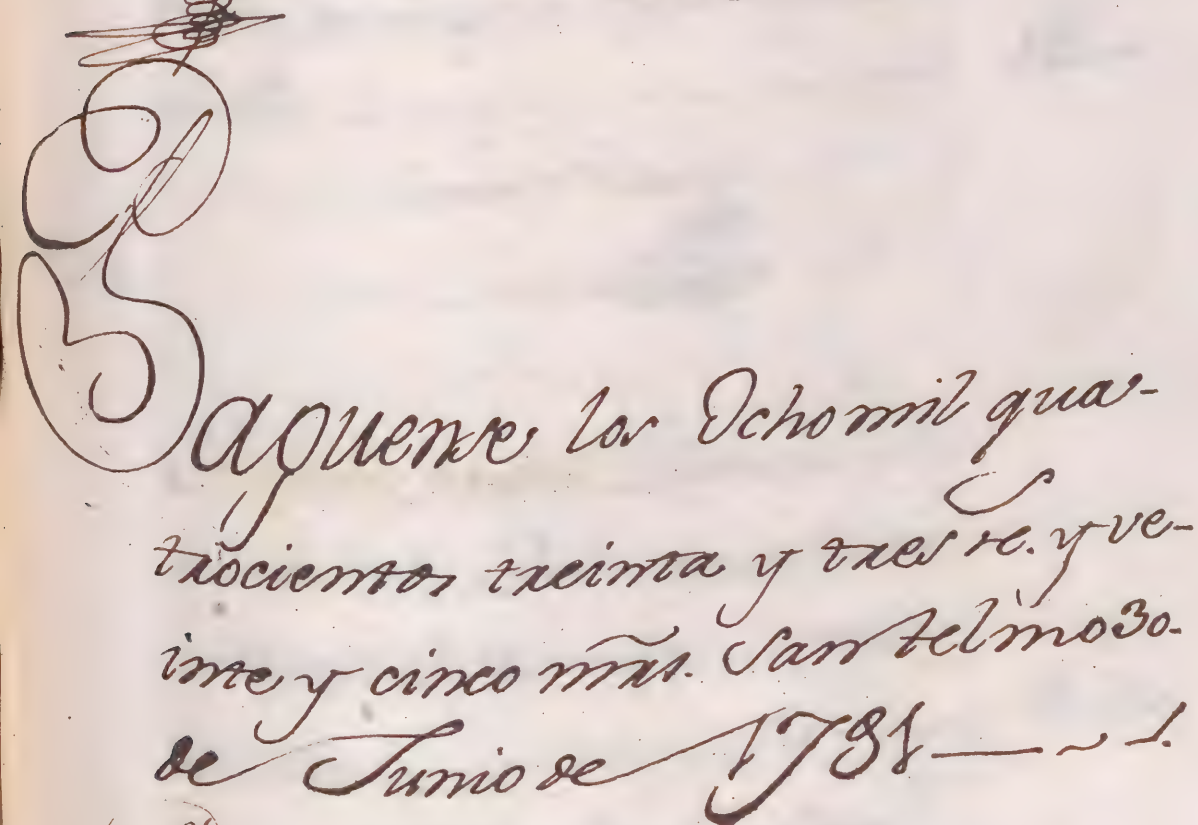 Saquense los Ocho mil qua-
trocientos treinta y tres rs. y ve-
inte y cinco mrãs. San telmo 30.
de Junio de 1781